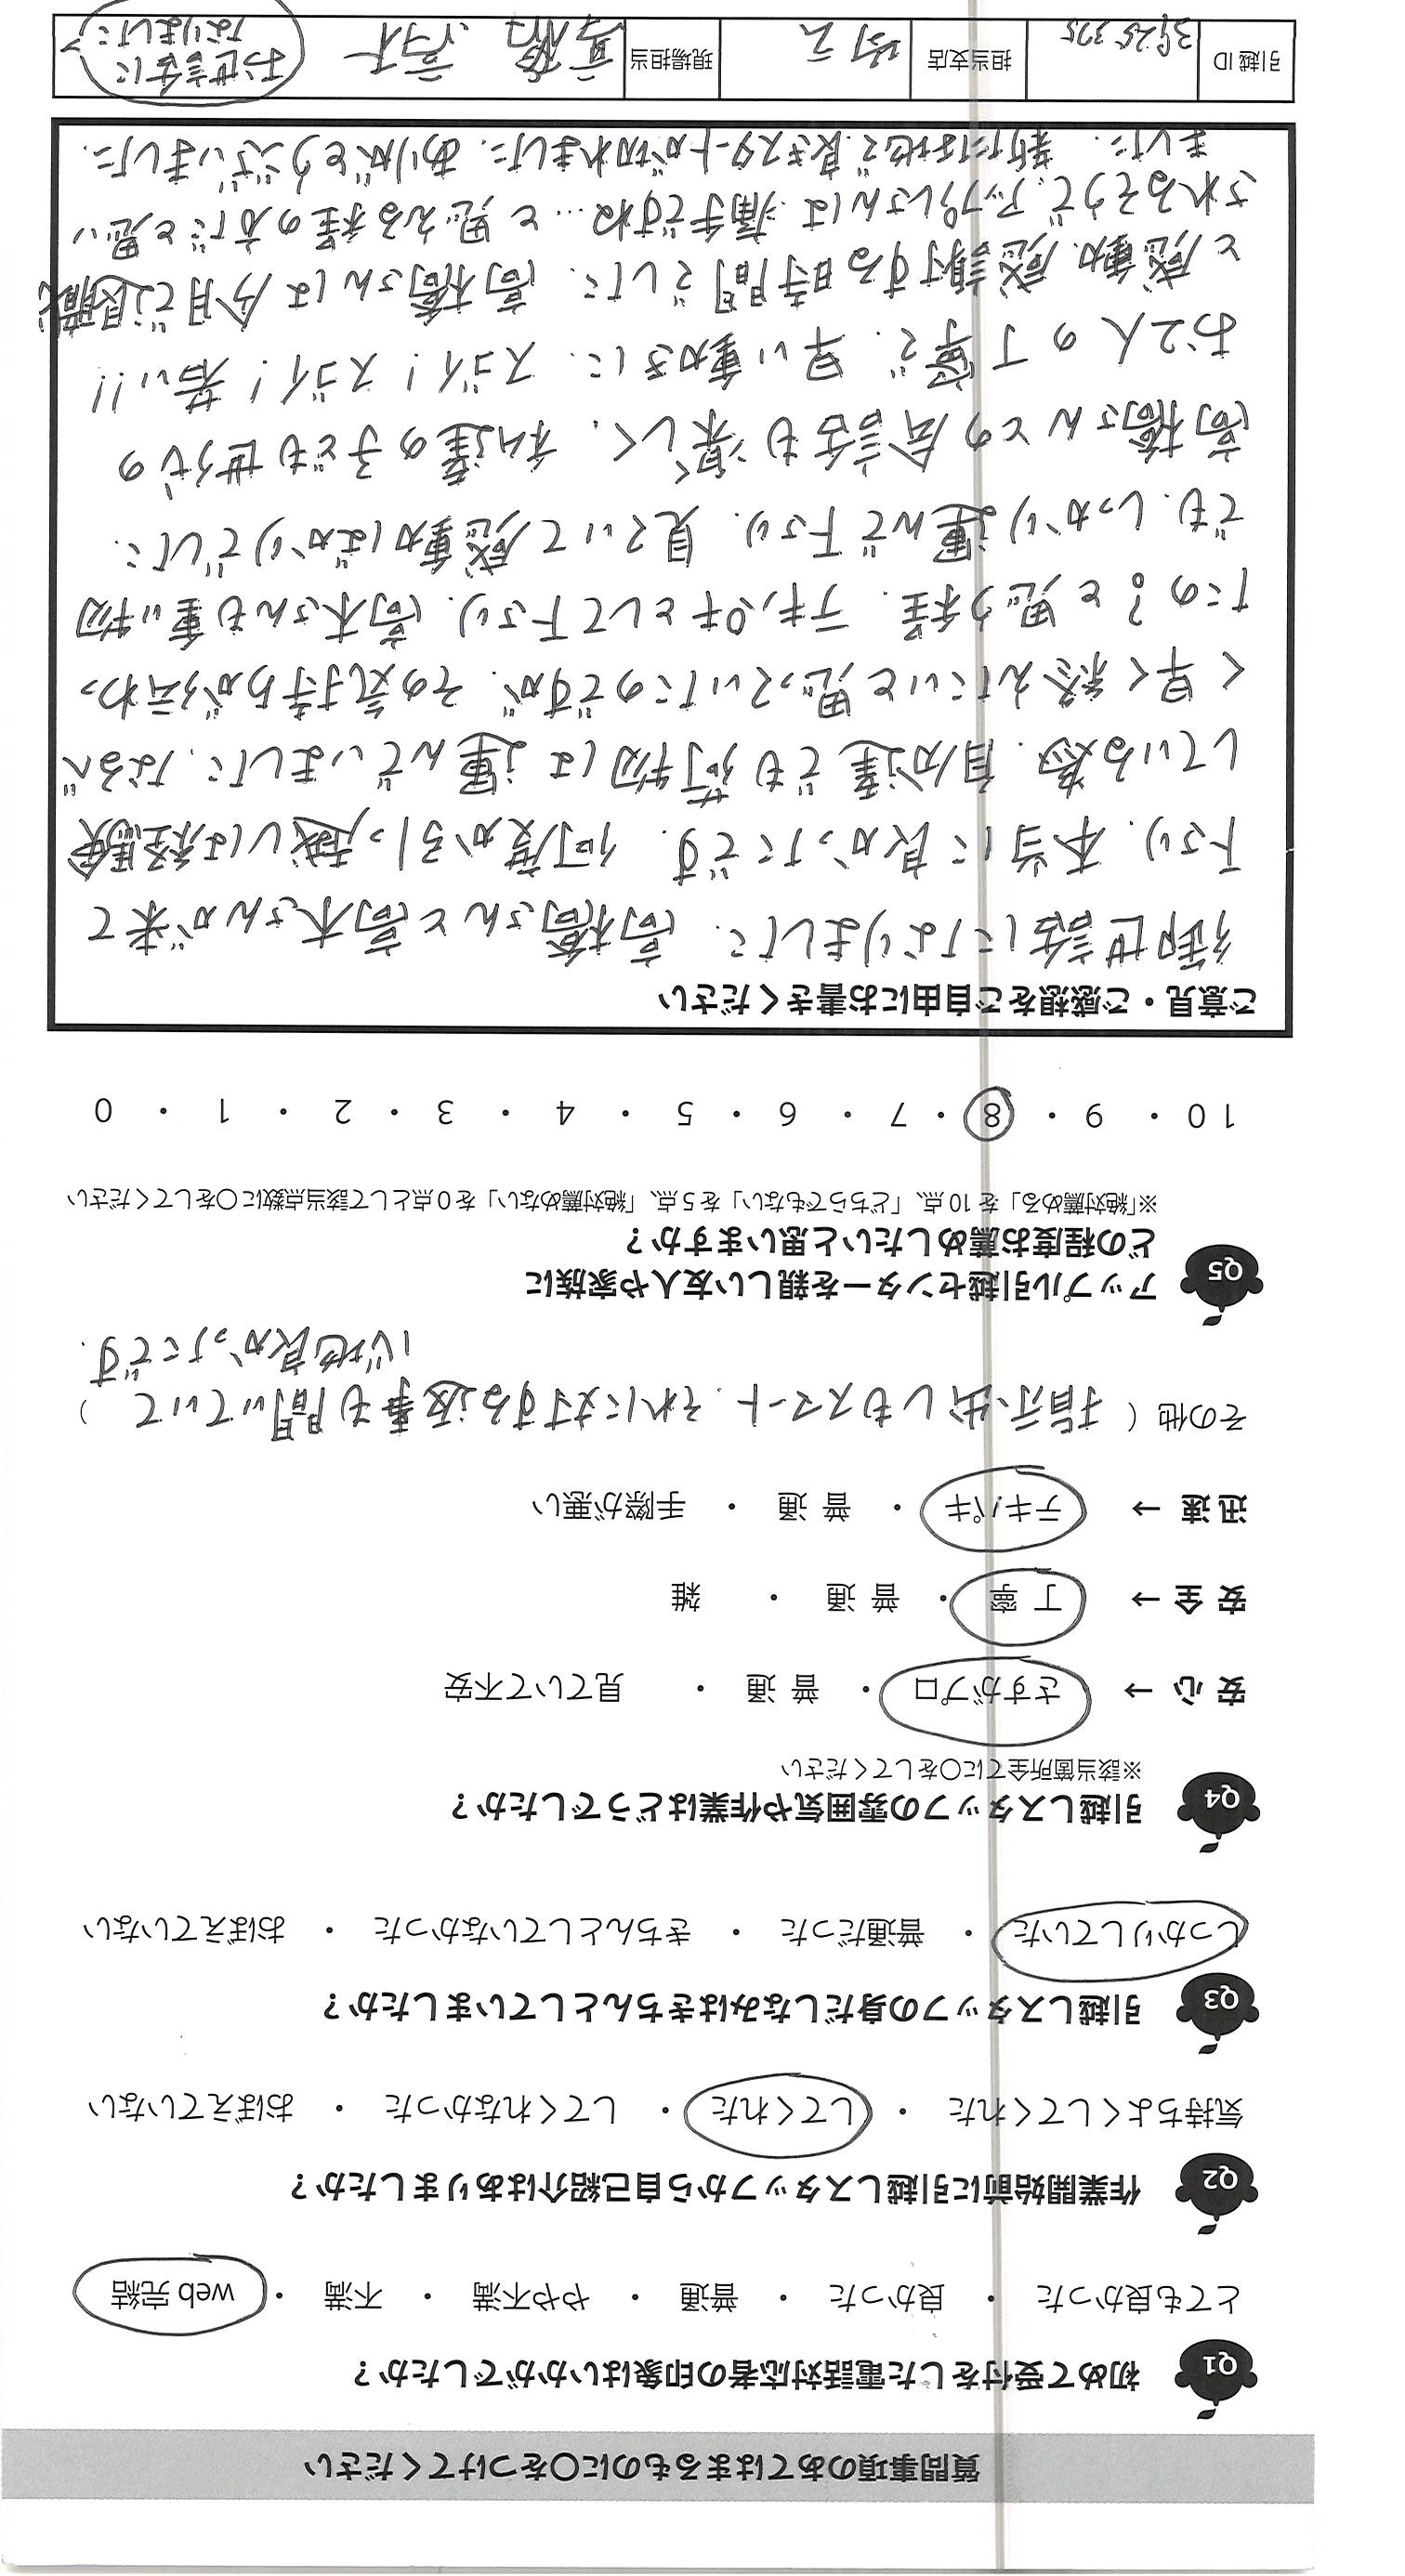 質問事項のあてはまるものに〇をつけてください
Q1 初めて受付をした電話対応者の印象はいかがでしたか？
とても良かった ・ 良かった ・ 普通 ・ やや不満 ・ 不満 ・ web 完結
Q2 作業開始前に引越しスタッフから自己紹介はありましたか？
気持ちよくしてくれた ・ してくれた ・ してくれなかった ・ おぼえていない
Q3 引越しスタッフの身だしなみはきちんとしていましたか？
しっかりしていた ・ 普通だった ・ きちんとしていなかった ・ おぼえていない
Q4 引越しスタッフの雰囲気や作業はどうでしたか？
※該当箇所全てに〇をしてください
安 心 → さすがプロ ・ 普 通 ・ 見ていて不安
安 全 → 丁 寧 ・ 普 通 ・ 雑
迅 速 → テキパキ ・ 普 通 ・ 手際が悪い
その他（ 指示出しもスマート、それに対する返事も聞いていて ）
心地良かったです。
Q5 アップル引越センターを親しい友人や家族に
どの程度お薦めしたいと思いますか？
※「絶対薦める」を 10 点、「どちらでもない」を 5 点、「絶対薦めない」を 0 点として該当点数に〇をしてください
10 ・ 9 ・ 8 ・ 7 ・ 6 ・ 5 ・ 4 ・ 3 ・ 2 ・ 1 ・ 0
ご意見・ご感想をご自由にお書きください
御世話になりました。高橋さんと高木さんが来て
下さり、本当に良かったです。何度か引っ越しは経験
している為、自分達でも荷物は運んでいました。なるべ
く早く終えたいと思っていたのですが、その気持ちが伝わっ
たの？と思う程、テキパキとして下さり、高木さんも重い物
でも、しっかり運んで下さり、見ていて感動ばかりでした。
高橋さんとの会話も楽しく、私達の子ども世代の
お2人の丁寧で、早い動きに、スゴイ！スゴイ！若い!!
と感動、感謝する時間でした。高橋さんは今月で退職
されるそうで、アップルさんは痛手ですね…と思える程の方だと思い
ました。新たな地で良きスタートが切れました。ありがとうございました。
引越 ID 3525375 担当支店 現場担当 高橋 高木 お世話に
なりました